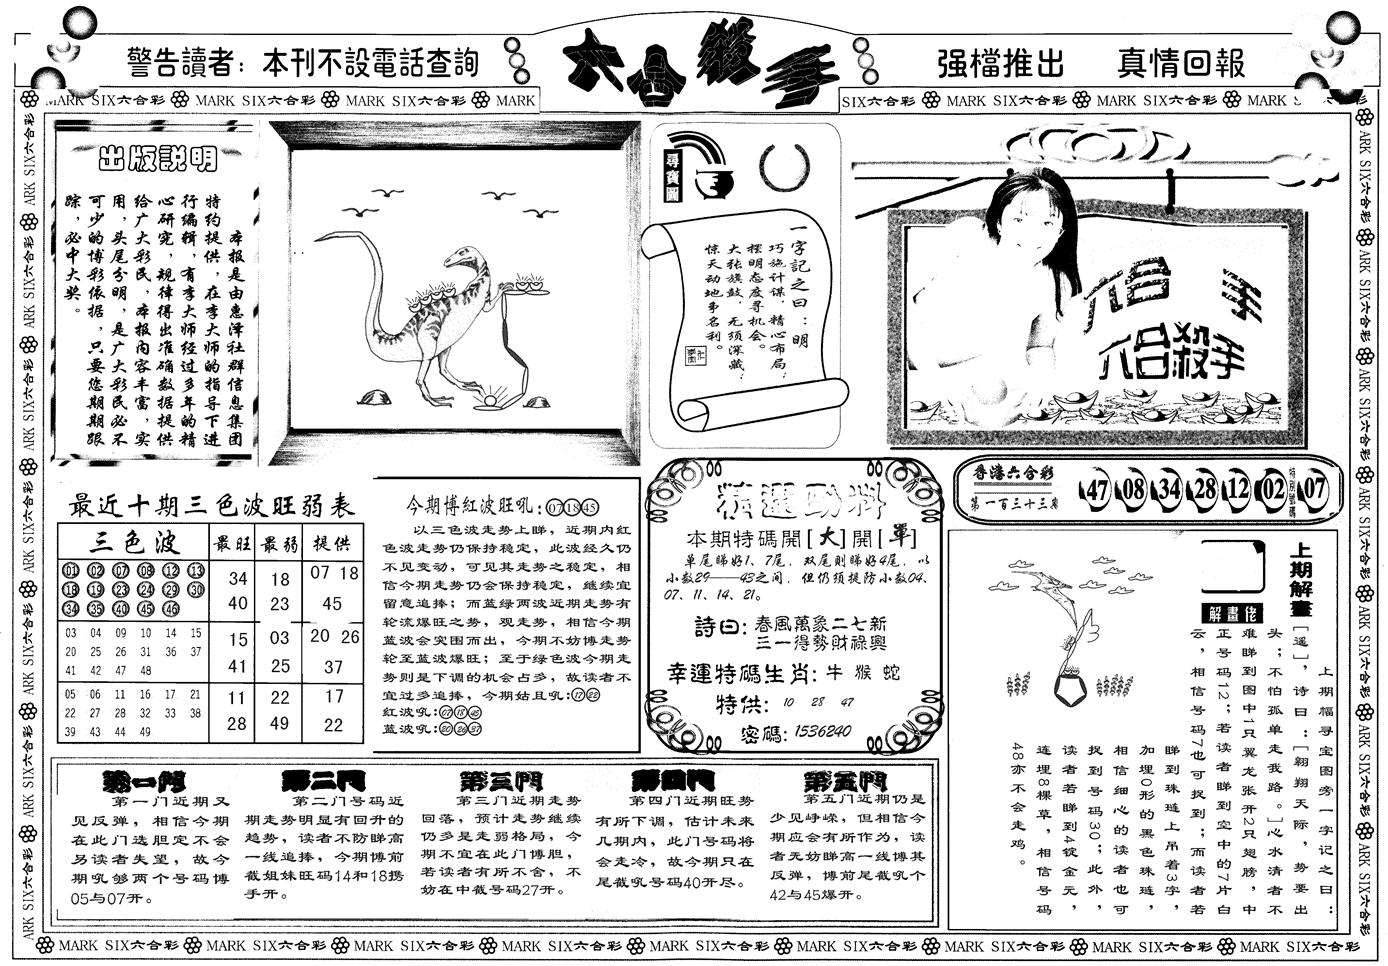 警告讀者：本刊不設電話查詢
六合殺手
强檔推出 真情回報
出版説明
本报是由惠泽社群信息集团
特约提供，在李大师的指导下进
行编辑，有李大师经过多年的精
心研究，规律得出准确数据提供
给广大彩民，本报内容丰富，实
用，头尾分明，是广大彩民必不
可少的博彩依据，只要您期期跟
踪，必中大奖。
尋寶圖
一字記之曰：明
巧施计谋，精心布局；
摆明态度寻机会。
大张旗鼓，无须深藏；
惊天动地争名利。
六合 手
六合殺手
香港六合彩
第一百三十三期
47 08 34 28 12 02 特别號碼 07
最近十期三色波旺弱表
三色波 最旺 最弱 提供
01 02 07 08 12 13
18 19 23 24 29 30
34 35 40 45 46
34 18 07 18
40 23 45
03 04 09 10 14 15
20 25 26 31 36 37
41 42 47 48
15 03 20 26
41 25 37
05 06 11 16 17 21
22 27 28 32 33 38
39 43 44 49
11 22 17
28 49 22
今期博紅波旺吼：07 18 45
以三色波走势上睇，近期内红
色波走势仍保持稳定，此波经久仍
不见变动，可见其走势之稳定，相
信今期走势仍会保持稳定，继续宜
留意追捧；而蓝绿两波近期走势有
轮流爆旺之势，观走势，相信今期
蓝波会突围而出，今期不妨博走势
轮至蓝波爆旺；至于绿色波今期走
势则是下调的机会占多，故读者不
宜过多追捧，今期姑且吼：17 22
红波吼：07 18 45
蓝波吼：20 26 37
精選動料
本期特碼開[大]開[單]
单尾睇好1、7尾，双尾则睇好4尾，以
小数29——43之间，但仍须提防小数04、
07、11、14、21。
詩曰：春風萬象二七新
三一得勢財祿興
幸運特碼生肖：牛 猴 蛇
特供：10 28 47
密碼：1536240
上期解畫
解畫佬
上期幅寻宝图旁一字记之曰：
[遥]，诗曰：[翱翔天际，势要出
头；不怕孤单走我路。]心水清者不
难睇到图中1只翼龙张开2只翅膀，中
正号码12；若读者睇到空中的7片白
云，相信号码7也可捉到；而读者若
睇到珠琏上吊着3字，
加埋0形的黑色珠琏，
相信细心的读者也可
捉到号码30；此外，
读者若睇到4锭金元，
连埋8棵草，相信号码
48亦不会走鸡。
第一門
第一门近期又
见反弹，相信今期
在此门选胆定不会
另读者失望，故今
期吼够两个号码博
05与07开。
第二門
第二门号码近
期走势明显有回升的
趋势，读者不防睇高
一线追捧，今期博前
截姐妹旺码14和18携
手开。
第三門
第三门近期走势
回落，预计走势继续
仍多是走弱格局，今
期不宜在此门博胆，
若读者有所不舍，不
妨在中截号码27开。
第四門
第四门近期旺势
有所下调，估计未来
几期内，此门号码将
会走冷，故今期只在
尾截吼号码40开尽。
第五門
第五门近期仍是
少见峥嵘，但相信今
期应会有所作为，读
者无妨睇高一线博其
反弹，博前尾截吼个
42与45爆开。
MARK SIX六合彩 MARK SIX六合彩 MARK SIX六合彩 MARK SIX六合彩 MARK SIX六合彩 MARK SIX六合彩 MARK SIX六合彩 MARK SIX六合彩 MARK SIX六合彩